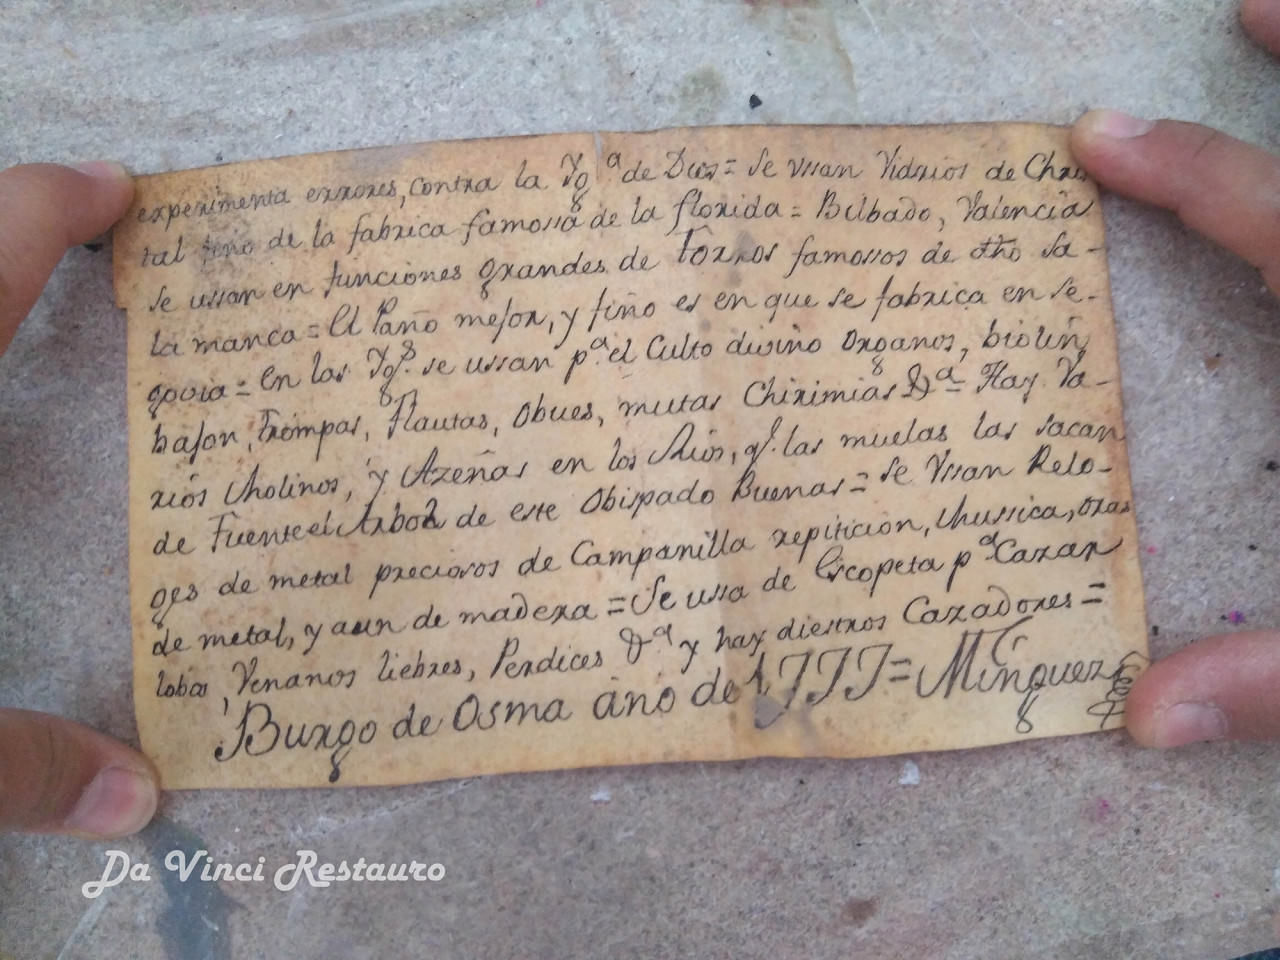 experimenta errores, contra la Yg.ª de Dios = Se vssan Vidrios de Chris
tal fino de la fabrica famossa de la florida = Bilbado, Valencia
se ussan en funciones grandes de torros famosos de dho Sa-
la manca = El Paño mejor, y fiño es en que se fabrica en Se-
govia = En las Yg.s se ussan p.ª el Culto diviño Organos, biolin,
bajon, Trompas, Flautas, obues, mutas Chirimias &.ª = Hay Va-
rios Molinos, y Azeñas en los Rios, q.e las muelas las sacan
de Fuente el Arbol de este obispado Buenas = se Vssan Relo-
ges de metal preciosos de Campanilla repiticion, Mussica, oras
de metal, y aun de madera = Se ussa de Escopeta p.ª Cazar
lobos, Venanos liebres, Perdices &.ª y hay diestros Cazadores =
Burgo de Osma año de 1777 = Minguez
Da Vinci Restauro